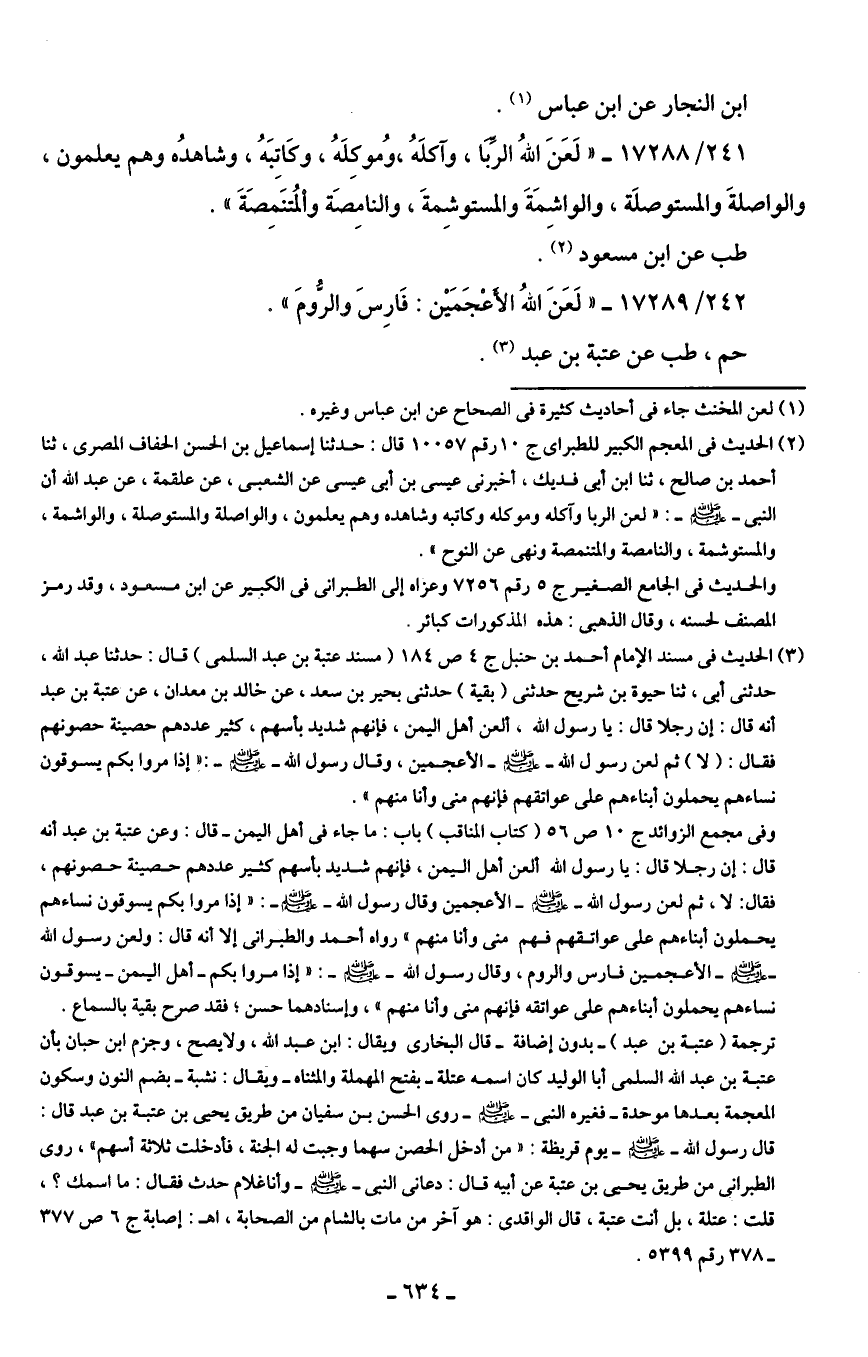 ابن النجار عن ابن عباس (١) .
٢٤١/ ١٧٢٨٨ ـ « لَعَنَ اللهُ الرِّبَا ، وآكلَهُ ،ومُوكِلَهُ ، وكَاتِبَهُ ، وشاهدُه وهم يعلمون ،
والواصلةَ والمستوصلَة ، والواشِمَةَ والمستوشمةَ ، والنامِصةَ وألْمُتَنَمِصَةَ » .
طب عن ابن مسعود (٢) .
٢٤٢/ ١٧٢٨٩ ـ « لَعَنَ اللهُ الأَعْجَمَيْن : فَارِسَ والرُّومَ » .
حم ، طب عن عتبة بن عبد (٣) .
(١) لعن المخنث جاء فى أحاديث كثيرة فى الصحاح عن ابن عباس وغيره .
(٢) الحديث فى المعجم الكبير للطبراى ج ١٠رقم ١٠٠٥٧ قال : حدثنا إسماعيل بن الحسن الخفاف المصرى ، ثنا
أحمد بن صالح ، ثنا ابن أبى فديك ، أخبرنى عيسى بن أبى عيسى عن الشعبى ، عن علقمة ، عن عبد الله أن
النبى ـ ﷺ ـ : « لعن الربا وآكله وموكله وكاتبه وشاهده وهم يعلمون ، والواصلة والمستوصلة ، والواشمة ،
والمستوشمة ، والنامصة والمتنمصة ونهى عن النوح » .
والحديث فى الجامع الصغير ج ٥ رقم ٧٢٥٦ وعزاه إلى الطبرانى فى الكبير عن ابن مسعود ، وقد رمز
المصنف لحسنه ، وقال الذهبى : هذه المذكورات كبائر .
(٣) الحديث فى مسند الإمام أحمد بن حنبل ج ٤ ص ١٨٤ ( مسند عتبة بن عبد السلمى ) قال : حدثنا عبد الله ،
حدثنى أبى ، ثنا حيوة بن شريح حدثنى ( بقية ) حدثنى بحير بن سعد ، عن خالد بن معدان ، عن عتبة بن عبد
أنه قال : إن رجلا قال : يا رسول الله ، ألعن أهل اليمن ، فإنهم شديد بأسهم ، كثير عددهم حصينة حصونهم
فقال : ( لا ) ثم لعن رسو ل الله ـ ﷺ ـ الأعجمين ، وقال رسول الله ـ ﷺ ـ :« إذا مروا بكم يسوقون
نساءهم يحملون أبناءهم على عواتقهم فإنهم منى وأنا منهم » .
وفى مجمع الزوائد ج ١٠ ص ٥٦ ( كتاب المناقب ) باب : ما جاء فى أهل اليمن ـ قال : وعن عتبة بن عبد أنه
قال : إن رجلا قال : يا رسول الله ألعن أهل اليمن ، فإنهم شديد بأسهم كثير عددهم حصينة حصونهم ،
فقال: لا ، ثم لعن رسول الله ـ ﷺ ـ الأعجمين وقال رسول الله ـ ﷺـ : « إذا مروا بكم يسوقون نساءهم
يحملون أبناءهم على عواتقهم فهم منى وأنا منهم » رواه أحمد والطبرانى إلا أنه قال : ولعن رسول الله
ـ ﷺ ـ الأعجمين فارس والروم ، وقال رسول الله ـ ﷺ ـ : « إذا مروا بكم ـ أهل اليمن ـ يسوقون
نساءهم يحملون أبناءهم على عواتقه فإنهم منى وأنا منهم » ، وإسنادهما حسن ؛ فقد صرح بقية بالسماع .
ترجمة ( عتبة بن عبد ) ـ بدون إضافة ـ قال البخارى ويقال : ابن عبد الله ، ولايصح ، وجزم ابن حبان بأن
عتبة بن عبد الله السلمى أبا الوليد كان اسمه عتلة ـ بفتح المهملة والمثناه ـ ويقال : نشبة ـ بضم النون وسكون
المعجمة بعدها موحدة ـ فغيره النبى ـ ﷺ ـ روى الحسن بن سفيان من طريق يحيى بن عتبة بن عبد قال :
قال رسول الله ـ ﷺ ـ يوم قريظة : « من أدخل الحصن سهما وجبت له الجنة ، فأدخلت ثلاثة أسهم» ، روى
الطبرانى من طريق يحيى بن عتبة عن أبيه قال : دعانى النبى ـ ﷺ ـ وأناغلام حدث فقال : ما اسمك ؟ ،
قلت : عتلة ، بل أنت عتبة ، قال الواقدى : هو آخر من مات بالشام من الصحابة ، اهـ : إصابة ج ٦ ص ٣٧٧
ـ ٣٧٨ رقم ٥٣٩٩ .
ـ ٦٣٤ ـ